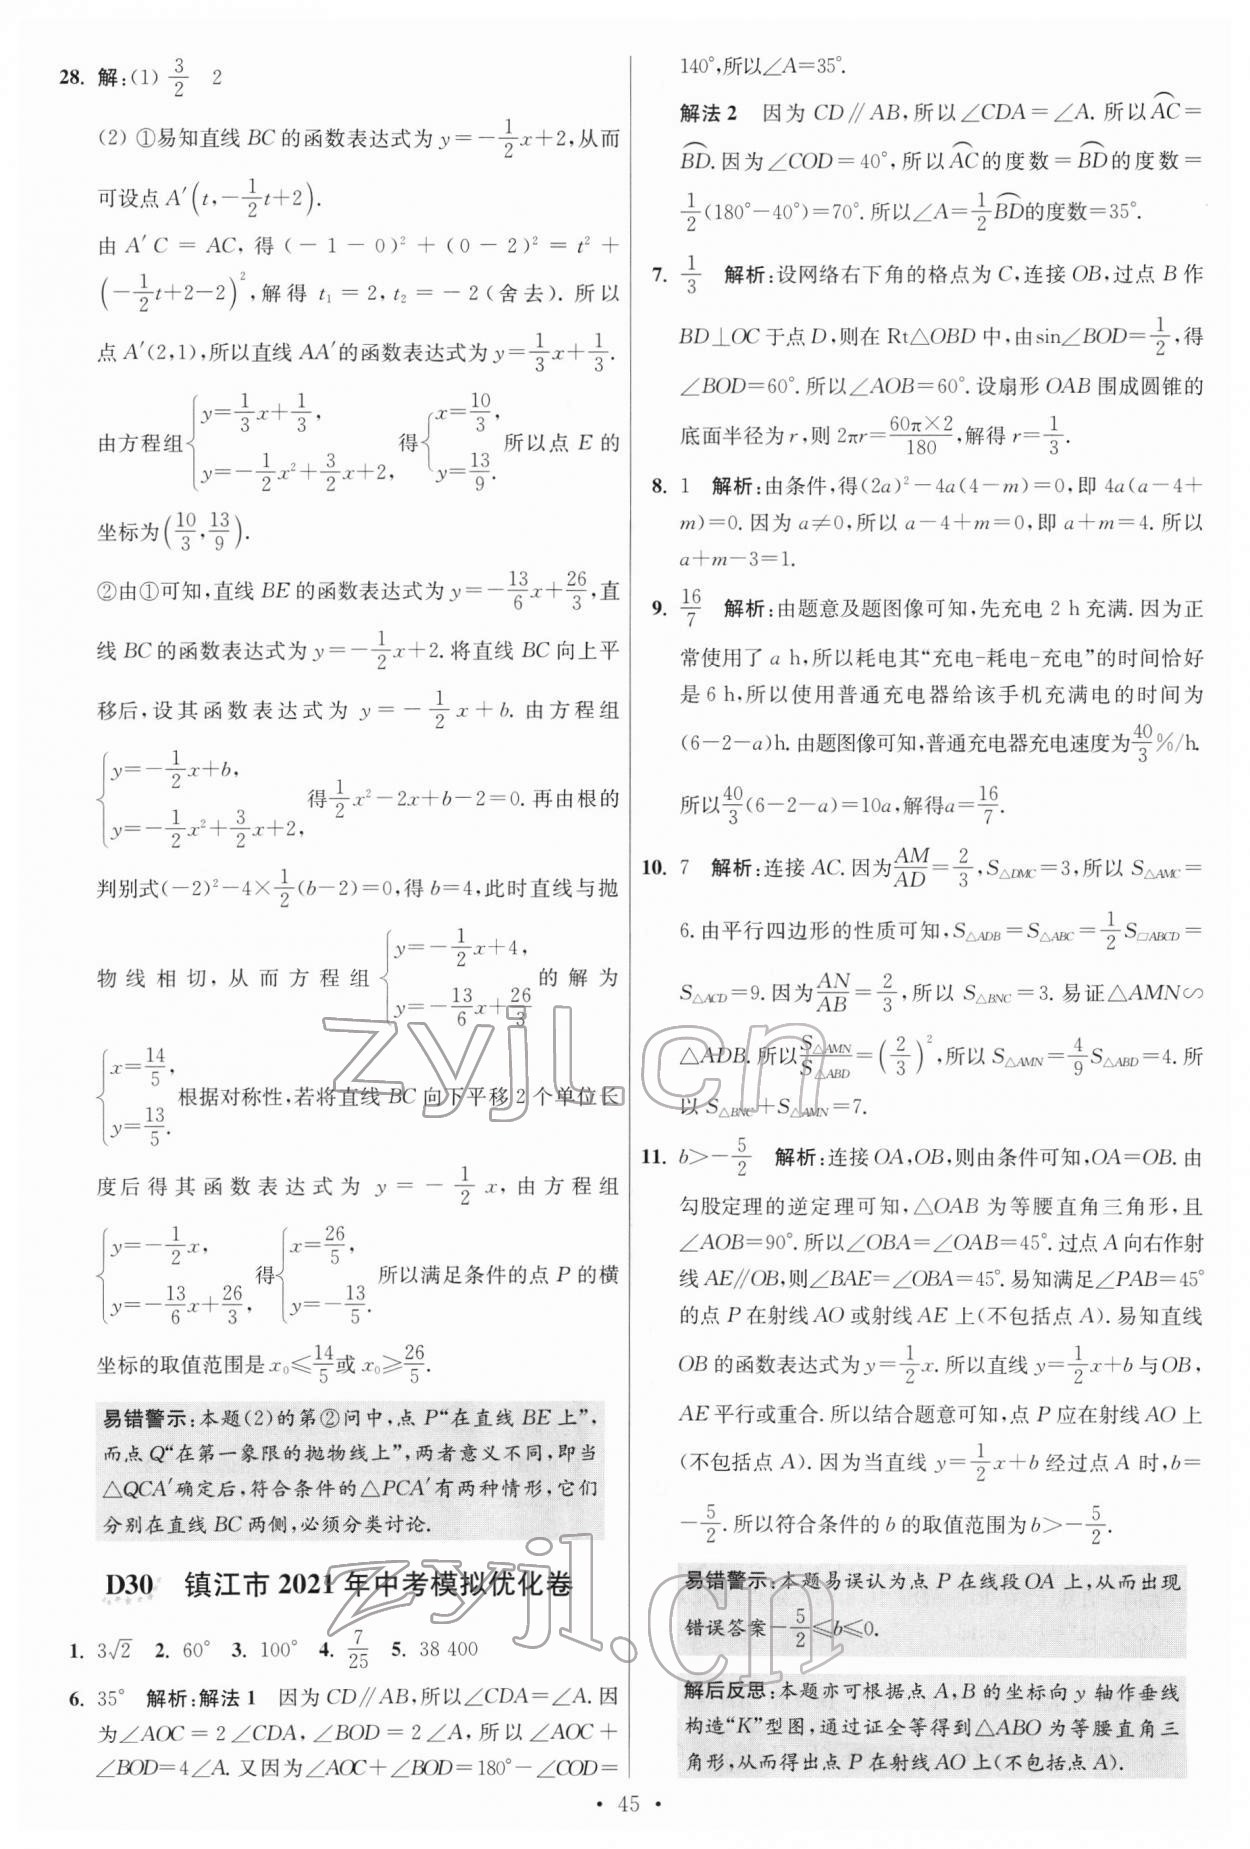 28. 解:(1) 3/2  2
(2) ①易知直线 BC 的函数表达式为 y=-1/2x+2,从而
可设点 A′(t,-1/2t+2).
由 A′C = AC, 得 (-1-0)²+(0-2)²=t²+
(-1/2t+2-2)²,解得 t₁=2,t₂=-2(舍去). 所以
点 A′(2,1),所以直线 AA′的函数表达式为 y=1/3x+1/3.
由方程组{y=1/3x+1/3, y=-1/2x²+3/2x+2, 得{x=10/3, y=13/9. 所以点 E 的
坐标为(10/3,13/9).
②由①可知,直线 BE 的函数表达式为 y=-13/6x+26/3,直
线 BC 的函数表达式为 y=-1/2x+2. 将直线 BC 向上平
移后,设其函数表达式为 y=-1/2x+b. 由方程组
{y=-1/2x+b, y=-1/2x²+3/2x+2, 得1/2x²-2x+b-2=0. 再由根的
判别式(-2)²-4×1/2(b-2)=0,得 b=4,此时直线与抛
物线相切,从而方程组{y=-1/2x+4, y=-13/6x+26/3 的解为
{x=14/5, y=13/5. 根据对称性,若将直线 BC 向下平移 2 个单位长
度后得其函数表达式为 y=-1/2x,由方程组
{y=-1/2x, y=-13/6x+26/3, 得{x=26/5, y=-13/5. 所以满足条件的点 P 的横
坐标的取值范围是 x₀≤14/5或 x₀≥26/5.
易错警示:本题(2)的第②问中,点 P“在直线 BE 上”,
而点 Q“在第一象限的抛物线上”,两者意义不同,即当
△QCA′确定后,符合条件的△PCA′有两种情形,它们
分别在直线 BC 两侧,必须分类讨论.
D30 镇江市 2021 年中考模拟优化卷
1. 3√2  2. 60°  3. 100°  4. 7/25  5. 38 400
6. 35° 解析:解法 1 因为 CD∥AB,所以∠CDA=∠A. 因
为∠AOC=2∠CDA,∠BOD=2∠A,所以∠AOC+
∠BOD=4∠A. 又因为∠AOC+∠BOD=180°-∠COD=
140°,所以∠A=35°.
解法 2 因为 CD∥AB,所以∠CDA=∠A. 所以A͡C=
B͡D. 因为∠COD=40°,所以A͡C的度数=B͡D的度数=
1/2(180°-40°)=70°. 所以∠A=1/2B͡D的度数=35°.
7. 1/3 解析:设网络右下角的格点为 C,连接 OB,过点 B 作
BD⊥OC 于点 D,则在 Rt△OBD 中,由sin∠BOD=1/2,得
∠BOD=60°. 所以∠AOB=60°. 设扇形 OAB 围成圆锥的
底面半径为 r,则 2πr=60π×2/180,解得 r=1/3.
8. 1 解析:由条件,得(2a)²-4a(4-m)=0,即 4a(a-4+
m)=0. 因为 a≠0,所以 a-4+m=0,即 a+m=4. 所以
a+m-3=1.
9. 16/7 解析:由题意及题图像可知,先充电 2 h 充满. 因为正
常使用了 a h,所以耗电其“充电-耗电-充电”的时间恰好
是 6 h,所以使用普通充电器给该手机充满电的时间为
(6-2-a)h. 由题图像可知,普通充电器充电速度为40/3%/h.
所以40/3(6-2-a)=10a,解得a=16/7.
10. 7 解析:连接 AC. 因为AM/AD=2/3,S△DMC=3,所以 S△AMC=
6. 由平行四边形的性质可知,S△ADB=S△ABC=1/2S□ABCD=
S△ACD=9. 因为AN/AB=2/3,所以 S△BNC=3. 易证△AMN∽
△ADB. 所以S△AMN/S△ABD=(2/3)²,所以 S△AMN=4/9S△ABD=4. 所
以 S△BNC+S△AMN=7.
11. b>-5/2 解析:连接 OA,OB,则由条件可知,OA=OB. 由
勾股定理的逆定理可知,△OAB 为等腰直角三角形,且
∠AOB=90°. 所以∠OBA=∠OAB=45°. 过点 A 向右作射
线 AE∥OB,则∠BAE=∠OBA=45°. 易知满足∠PAB=45°
的点 P 在射线 AO 或射线 AE 上(不包括点 A). 易知直线
OB 的函数表达式为 y=1/2x. 所以直线 y=1/2x+b 与 OB,
AE 平行或重合. 所以结合题意可知,点 P 应在射线 AO 上
(不包括点 A). 因为当直线 y=1/2x+b 经过点 A 时,b=
-5/2. 所以符合条件的 b 的取值范围为 b>-5/2.
易错警示:本题易误认为点 P 在线段 OA 上,从而出现
错误答案-5/2≤b≤0.
解后反思:本题亦可根据点 A,B 的坐标向 y 轴作垂线
构造“K”型图,通过证全等得到△ABO 为等腰直角三
角形,从而得出点 P 在射线 AO 上(不包括点 A).
• 45 •
zyjl.cn
zyjl.cn